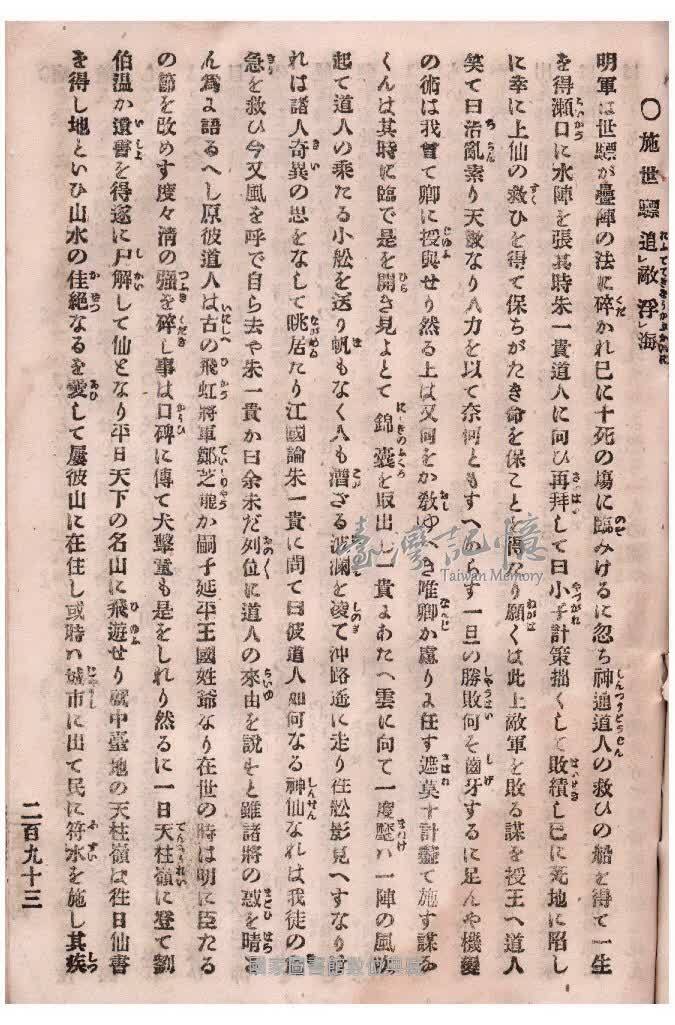 〇施世驃追敵浮海
明軍は世驃が臺陣の法に碎かれ已に十死の塲に臨みけるに忽ち神通道人の救ひの船を得て一生
を得瀬口に水陣を張其時朱一貴道人に向ひ再拜して曰小子計策拙くして敗績し已に死地に陷し
に幸に上仙の救ひを得て保ちがたき命を保ことを得たり願くは此上敵軍を敗る謀を授玉へ道人
笑て曰治亂素り天數なり人力を以て奈何ともすへからす一旦の勝敗何そ齒牙するに足んや機變
の術は我曾て卿に授與せり然る上は又何をか敎ゆべき唯卿か慮りよ任す計盡て施す謀な
くんは其時に臨で是を開き見よとて錦囊を取出し一貴よあたへ雲に向て一度麾ハ一陣の風吹
起て道人の乘たる小舩を送り帆もなく人も漕ざる波瀾を凌て沖路遥に走り往舩影見へすなり
れは諸人奇異の思をなして眺居たり江國論朱一貴に問て曰彼道人如何なる神仙なれは我徒の危
急を救ひ今又風を呼で自ら去や朱一貴か曰余未だ列位に道人の來由を説せと雖諸將の惑を晴さ
ん爲よ語るへし原彼道人は古の飛虹將軍鄭芝龍か嗣子延平王國姓爺なり在世の時は明に臣たる
の節を改めす度々淸の强を碎し事は口碑に傳て犬擊童も是をしれり然るに一日天柱嶺に登て劉
伯溫か遺書を得遂に尸解して仙となり平日天下の名山に飛遊せり就中臺地の天柱嶺は往日仙書
を得し地といひ山水の佳絶なるを愛して屢彼山に在住し或時ハ城市に出て民に符水を施し其疾
二百九十三
臺灣記憶
Taiwan Memory
國家圖書館數位典藏